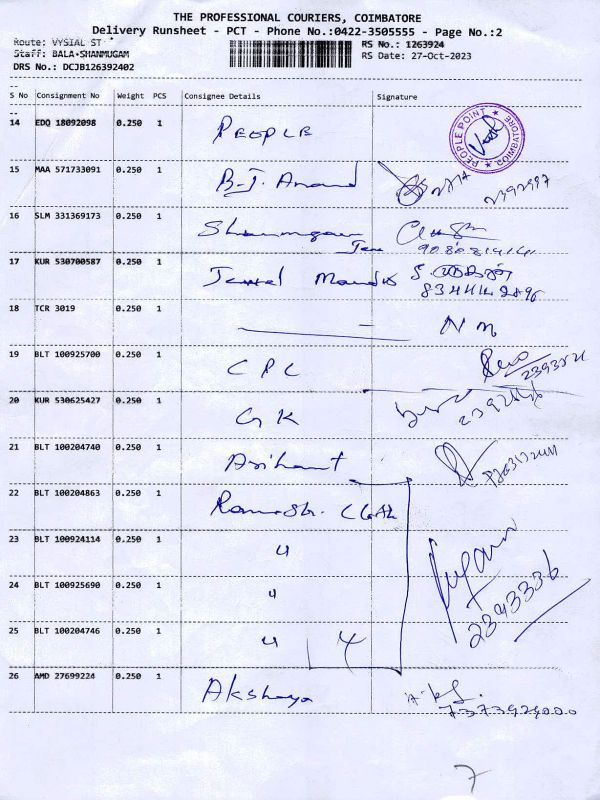 THE PROFESSIONAL COURIERS, COIMBATORE
Delivery Runsheet - PCT - Phone No.:0422-3505555 - Page No.:2
Route: VYSIAL ST
Staff: BALA.SHANMUGAM
DRS No.: DCJB126392402
RS No.: 1263924
RS Date: 27-Oct-2023
S No Consignment No Weight PCS Consignee Details Signature
14 EDQ 18092098 0.250 1 PEOPLE
PEOPLE POINT ★ COIMBATORE ★
15 MAA 571733091 0.250 1 B.J. Anand 2392997
16 SLM 331369173 0.250 1 Shanmugam
17 KUR 530700587 0.250 1 Jewel
18 TCR 3019 0.250 1 — N M
19 BLT 100925700 0.250 1 CPC
20 KUR 530625427 0.250 1 GK
21 BLT 100204740 0.250 1 Arihant
22 BLT 100204863 0.250 1 Ramesh. Cloth
23 BLT 100924114 0.250 1 "
24 BLT 100925690 0.250 1 "
25 BLT 100204746 0.250 1 " 4 2343336
26 AMD 27699224 0.250 1 Akshaya
7